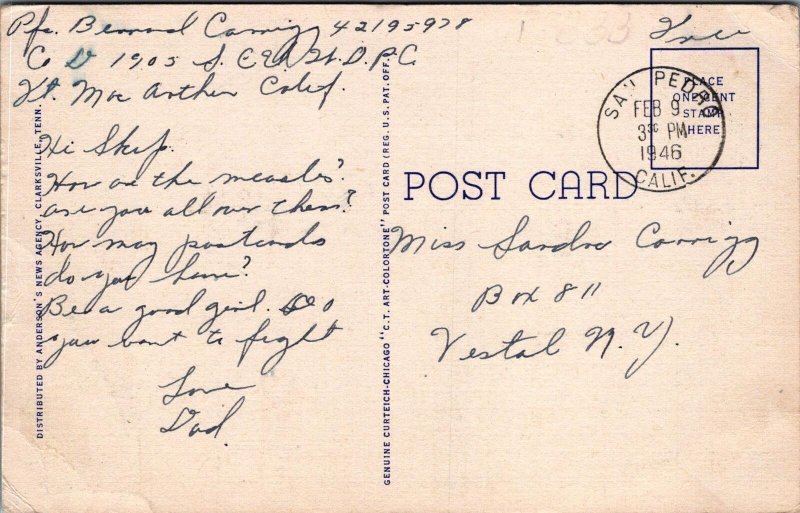 Pfc. Bernard Corrigg 42195978
Co D 1905 S.C.E.U. D.P.C.
Ft. Mac Arthur Calif.
Free
PLACE
ONE CENT
STAMP
HERE
SAN PEDRO
FEB 9
3 30 PM
1946
CALIF.
POST CARD
Hi Skip.
How are the measles?
are you all over them?
How many postcards
do you have?
Be a good girl. Do
you want to fight
Love
Dad.
Miss Sandra Corrigg
Box 811
Vestal N.Y.
DISTRIBUTED BY ANDERSON'S NEWS AGENCY, CLARKSVILLE, TENN.
GENUINE CURTEICH-CHICAGO "C.T. ART-COLORTONE" POST CARD (REG. U.S. PAT. OFF.)